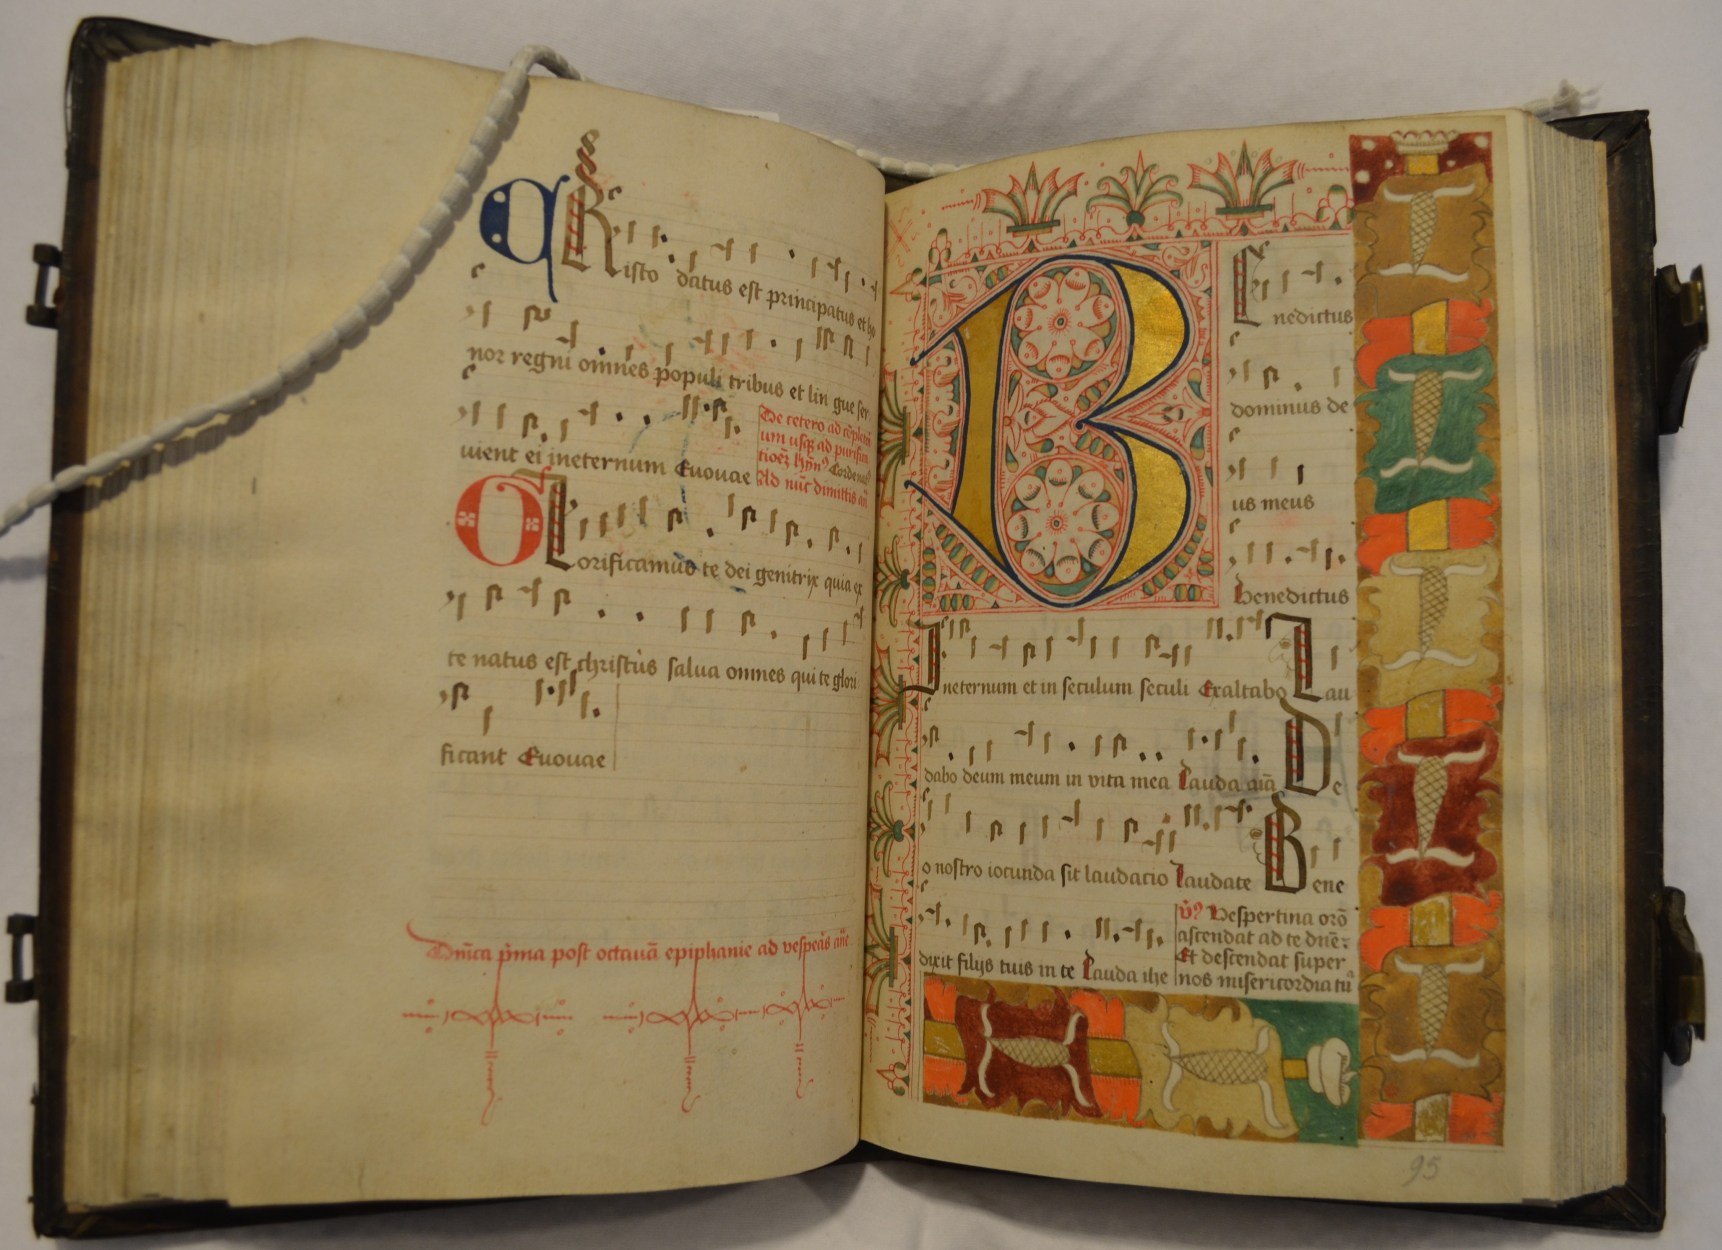 XRisto datus est principatus et ho
nor regni omnes populi tribus et lin gue ser
uient ei ineternum Euouae
De cetero ad cōpletori
um usqȝ ad purifica
tioēȝ hȳn⁹ Corde nat⁹
Ad nūc dimittis añ
GLorificamus te dei genitrix quia ex
te natus est christus salua omnes qui te glori
ficant Euouae
Dn̄ica p̄ma post octauā epiphanie ad vesperas añe
BEnedictus
dominus de
us meus
Benedictus
Ineternum et in seculum seculi Exaltabo Lau
dabo deum meum in vita mea Lauda aīa De
o nostro iocunda sit laudacio Laudate Bene
dixit filijs tuis in te Lauda ihe
v̄⁹ Vespertina orō
ascendat ad te dn̄e:
Et descendat super
nos misericordia tua
95